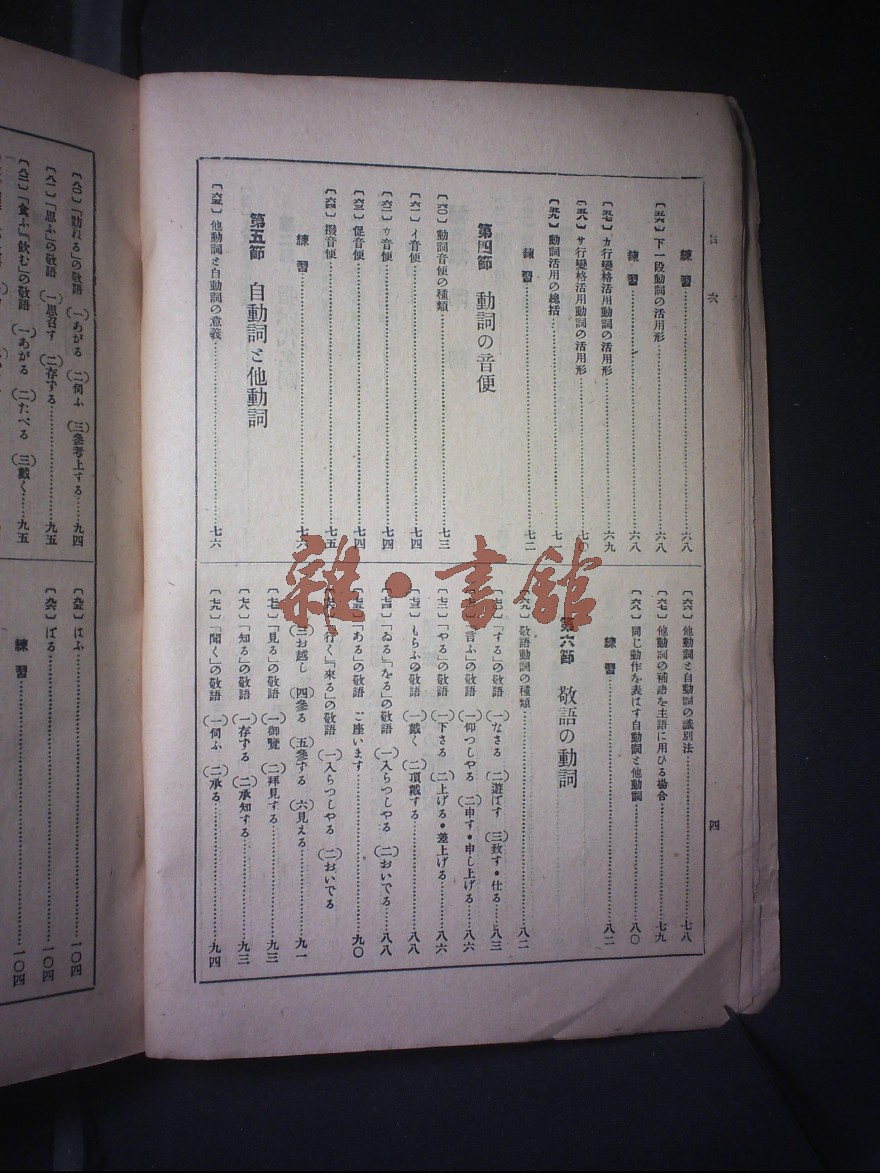 目次
四
練習……六八
〔五六〕下一段動詞の活用形……六八
練習……六八
〔五七〕カ行變格活用動詞の活用形……六九
〔五八〕サ行變格活用動詞の活用形……七〇
〔五九〕動詞活用の總括……七
練習……七二
第四節 動詞の音便
〔六〇〕動詞音便の種類……七三
〔六一〕イ音便……七四
〔六二〕ウ音便……七四
〔六三〕促音便……七四
〔六四〕撥音便……七五
練習……七六
第五節 自動詞と他動詞
〔六五〕他動詞と自動詞の意義……七六
〔六六〕他動詞と自動詞の識別法……七八
〔六七〕他動詞の補語を主語に用ひる場合……七九
〔六八〕同じ動作を表はす自動詞と他動詞……八〇
練習……八二
第六節 敬語の動詞
〔六九〕敬語動詞の種類……八二
「する」の敬語 (一)なさる (二)遊ばす (三)致す・仕る……八三
言ふ」の敬語 (一)仰つしやる (二)申す・申し上げる……八六
「やる」の敬語 (一)下さる (二)上げる・差上げる……八六
〔七三〕もらふの敬語 (一)戴く (二)頂戴する……八八
〔七四〕「ゐる」「をる」の敬語 (一)入らつしやる (二)おいでる……八八
〔七五〕「ある」の敬語 ご座います……九〇
「行く」「來る」の敬語 (一)入らつしやる (二)おいでる
(三)お越し (四)參る (五)參ずる (六)見える……九一
〔七七〕「見る」の敬語 (一)御覽 (二)拜見する……九三
〔七八〕「知る」の敬語 (一)存ずる (二)承知する……九三
〔七九〕「聞く」の敬語 (一)伺ふ (二)承る……九四
〔八〇〕「訪ねる」の敬語 (一)あがる (二)伺ふ (三)參考上する……九四
〔八一〕「思ふ」の敬語 (一)思召す (二)存ずる……九五
〔八二〕「食ふ」「飲む」の敬語 (一)あがる (二)たべる (三)戴く……九五
〔九五〕はふ……一〇四
〔九六〕ばる……一〇四
練習……一〇四
雜・書館